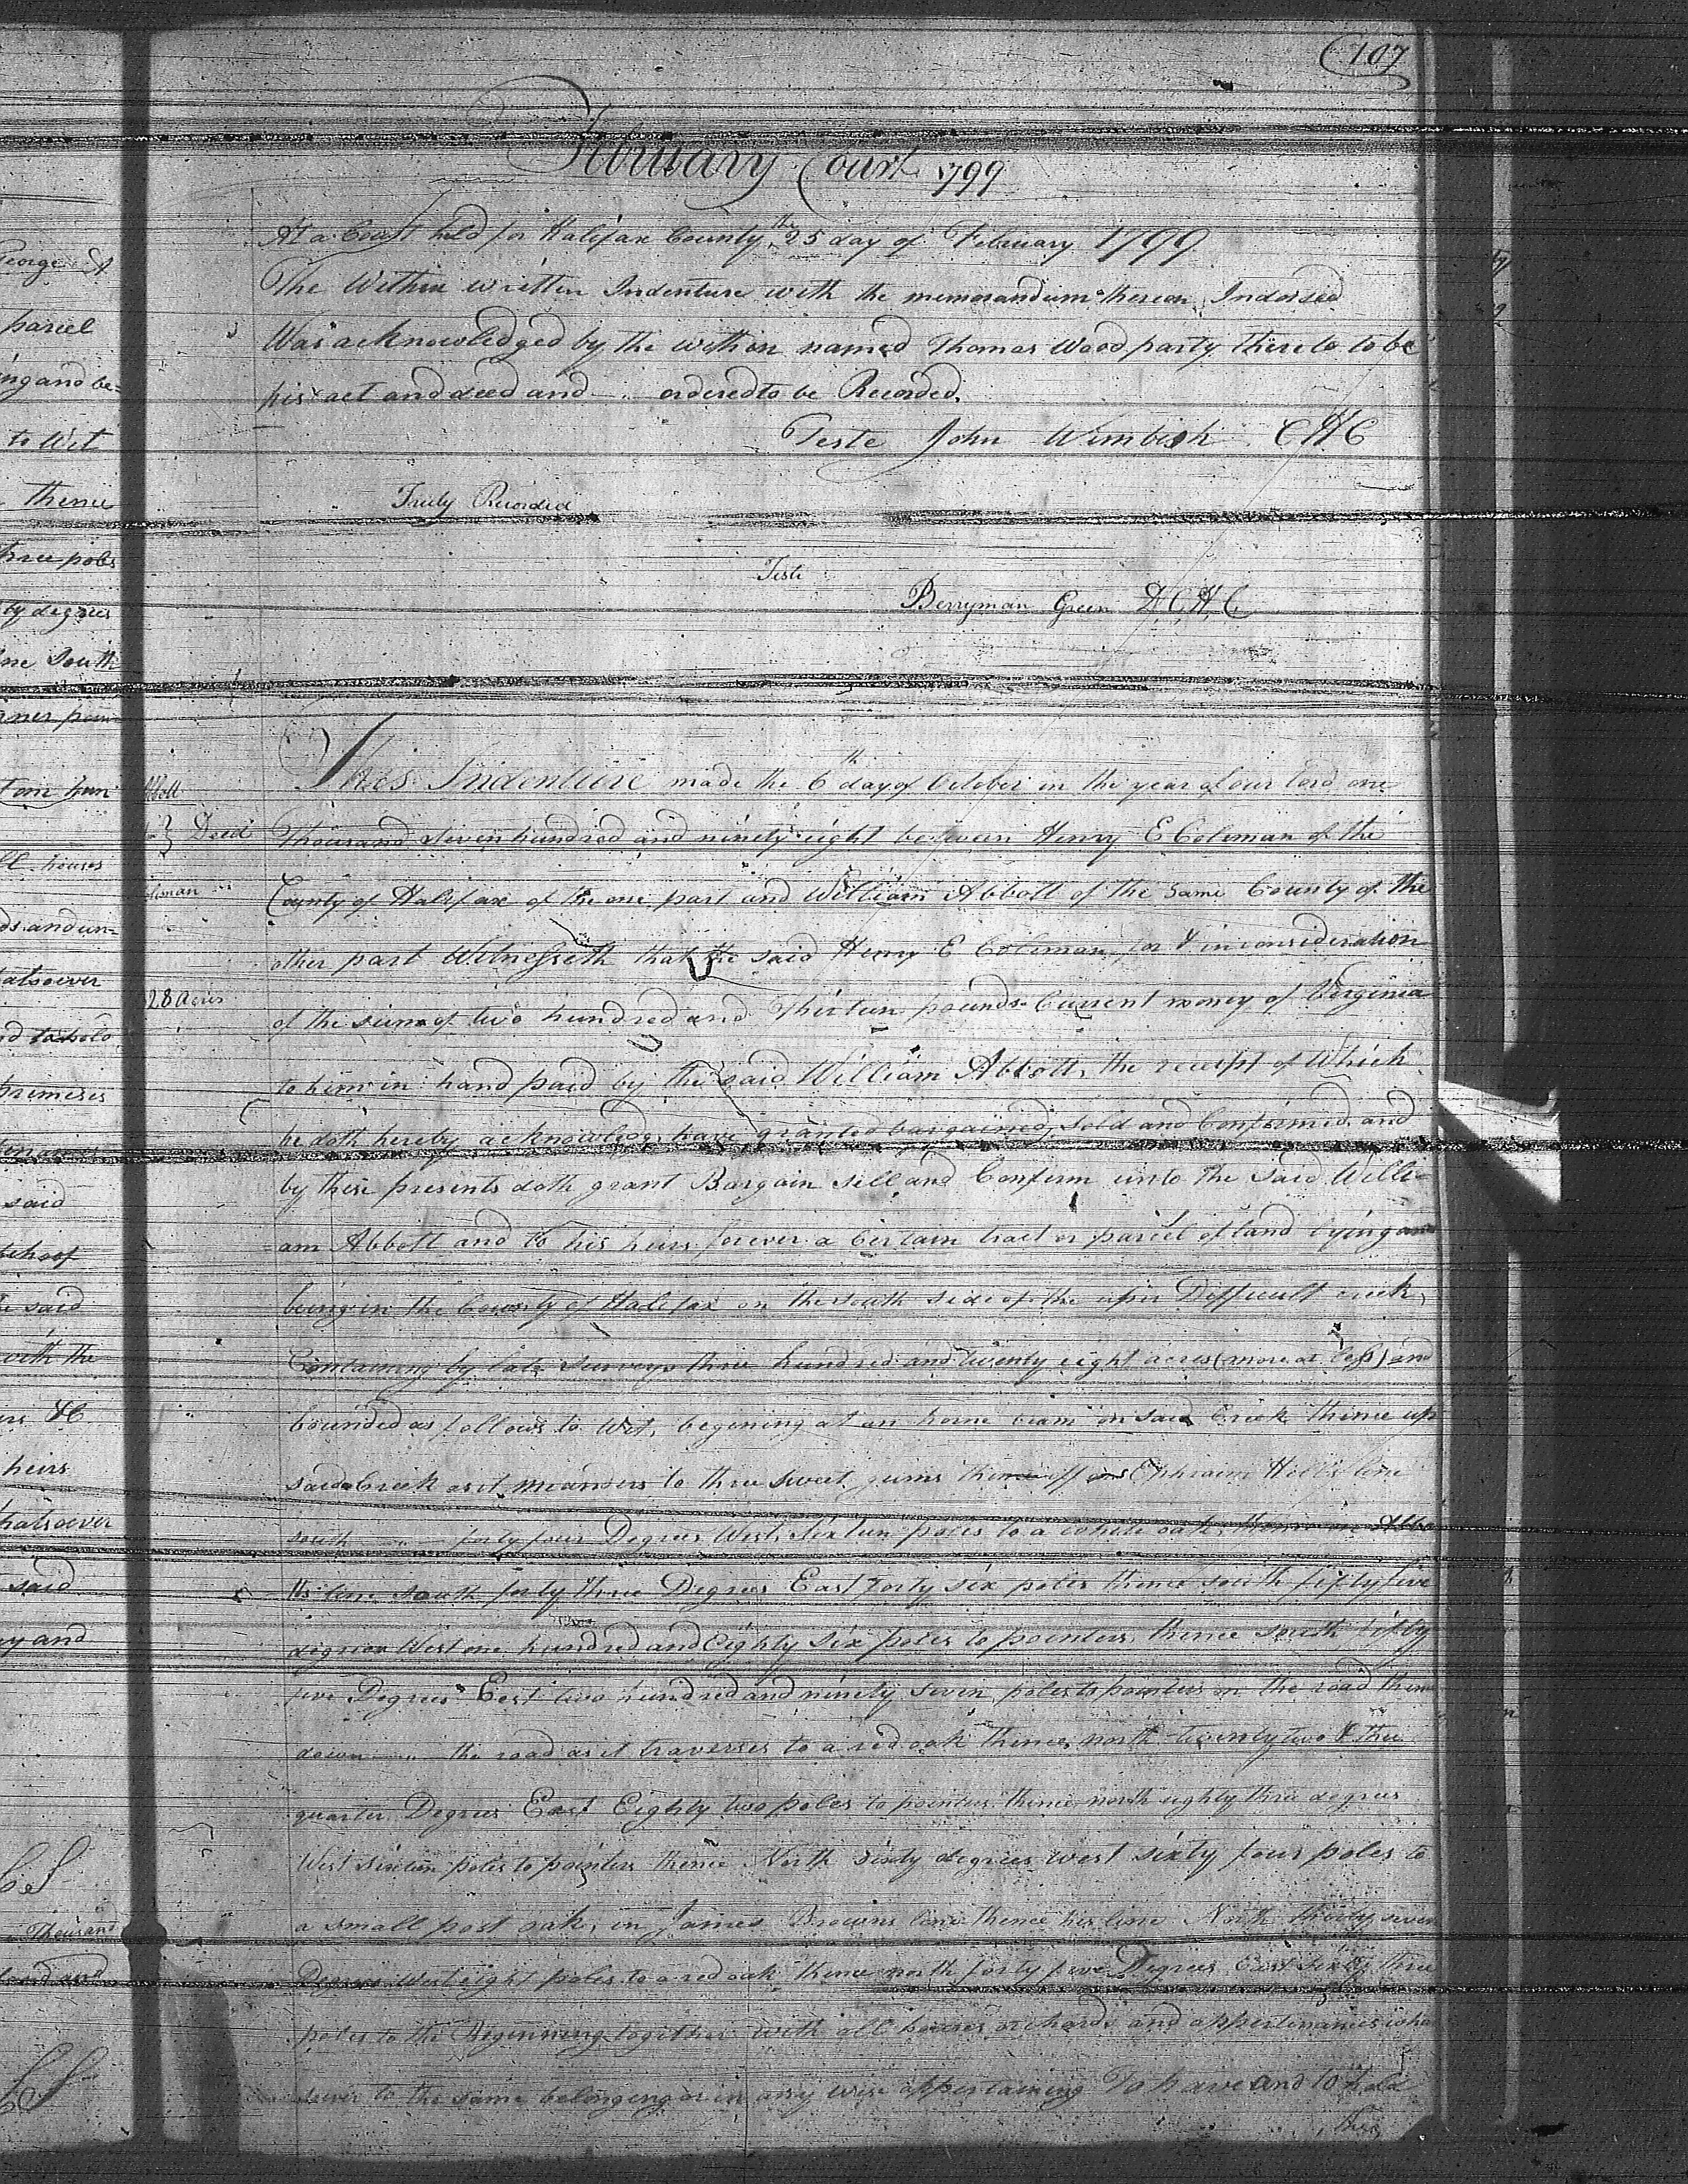 107
February Court 1799
At a Court held for Halifax County the 25 day of February 1799
The Within written Indenture with the memorandum thereon Indorsed
Was acknowledged by the within named Thomas Wood party thereto to be
his act and deed and ordered to be Recorded.
Teste John Wimbish CHC
Truly Recorded
Teste
Berryman Green D.C.H.C
This Indenture made the 6th day of October in the year of our lord one
Thousand seven hundred and ninety eight between Henry E Coleman of the
County of Halifax of the one part and William Abbott of the same County of the
other part Witnesseth that the said Henry E Coleman for & in consideration
of the sum of two hundred and Thirteen pounds Current money of Virginia
to him in hand paid by the said William Abbott, the receipt of Which
he doth hereby acknowledge have granted bargained, sold and Confirmed and
by these presents doth grant Bargain sell and Confirm unto the said Willi-
am Abbott and to his heirs forever a Certain tract or parcel of land lying and
being in the County of Halifax on the south side of the uper Difficult creek,
Containing by late survey three hundred and twenty eight acres (more or less) and
bounded as follows to Wit, begining at an horne beam on said Creek thence up
said Creek as it meanders to three sweet gums thence off on Ephraim Hills line
south forty four Degrees West sixteen poles to a white oak thence on Abbo
tts line south forty three Degrees East forty six poles thence south fifty five
degrees West one hundred and Eighty six poles to pointers, thence south fifty
five Degrees East two hundred and ninety seven poles to pointers on the road thence
down the road as it traverses to a red oak thence north twenty two & three
quarter Degrees East Eighty two poles to pointers thence north eighty three degrees
West sixteen poles to pointers thence North sixty degrees west sixty four poles to
a small post oak, in James Browns line thence his line North thirty seven
Degrees West eight poles to a red oak thence north forty five Degrees East sixty three
poles to the Beginning together with all houses orchards and appertinances what
soever to the same belonging or in any wise appertaining To have and to hold
the
Deed
28 Acres
parcel
ing and be-
to Wit
thence
three poles
ty degrees
ne South
houses
ds and un-
atsoever
said
behoof
said
with the
heirs
hatsoever
said
y and
Thousand